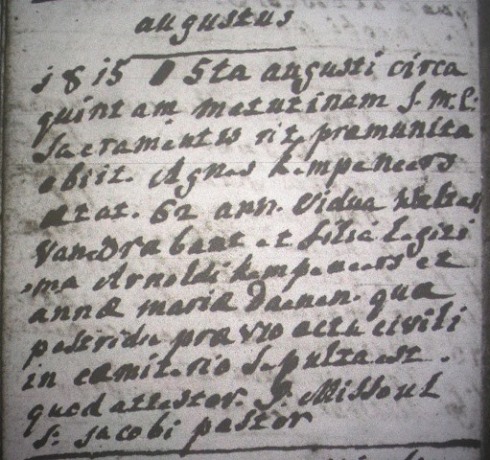 augustus
1815 5ta augusti circa
quintam matutinam S. m. E:
Sacramentis rite præmunita
obiit. Agnes kempeneers
ætat. 62 ann. vidua
vanbrabant et filia legiti
ma Arnoldi kempeneers et
annæ mariæ daemen. quæ
postridie prævio actu civili
in cæmiterio sepulta est.
quod attestor. P. Missoul
S: jacobi pastor